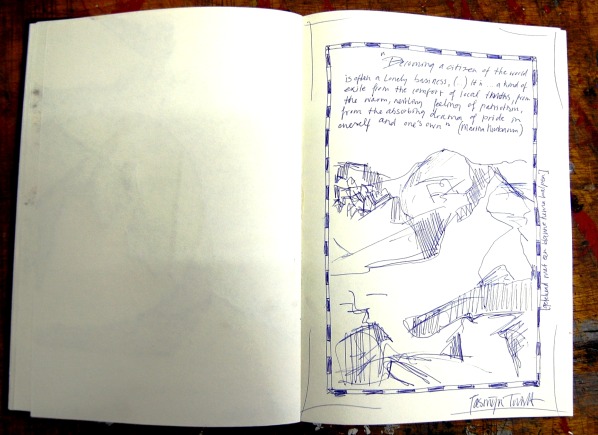 "Becoming a citizen of the world
is often a lonely bussiness, (..) It is .. a kind of
exile from the comfort of local truths, from
the warm, nestling feeling of patriotism,
from the absorbing drama of pride in
oneself and one's own" (Martha Nussbaum)
met een
Tasmijn